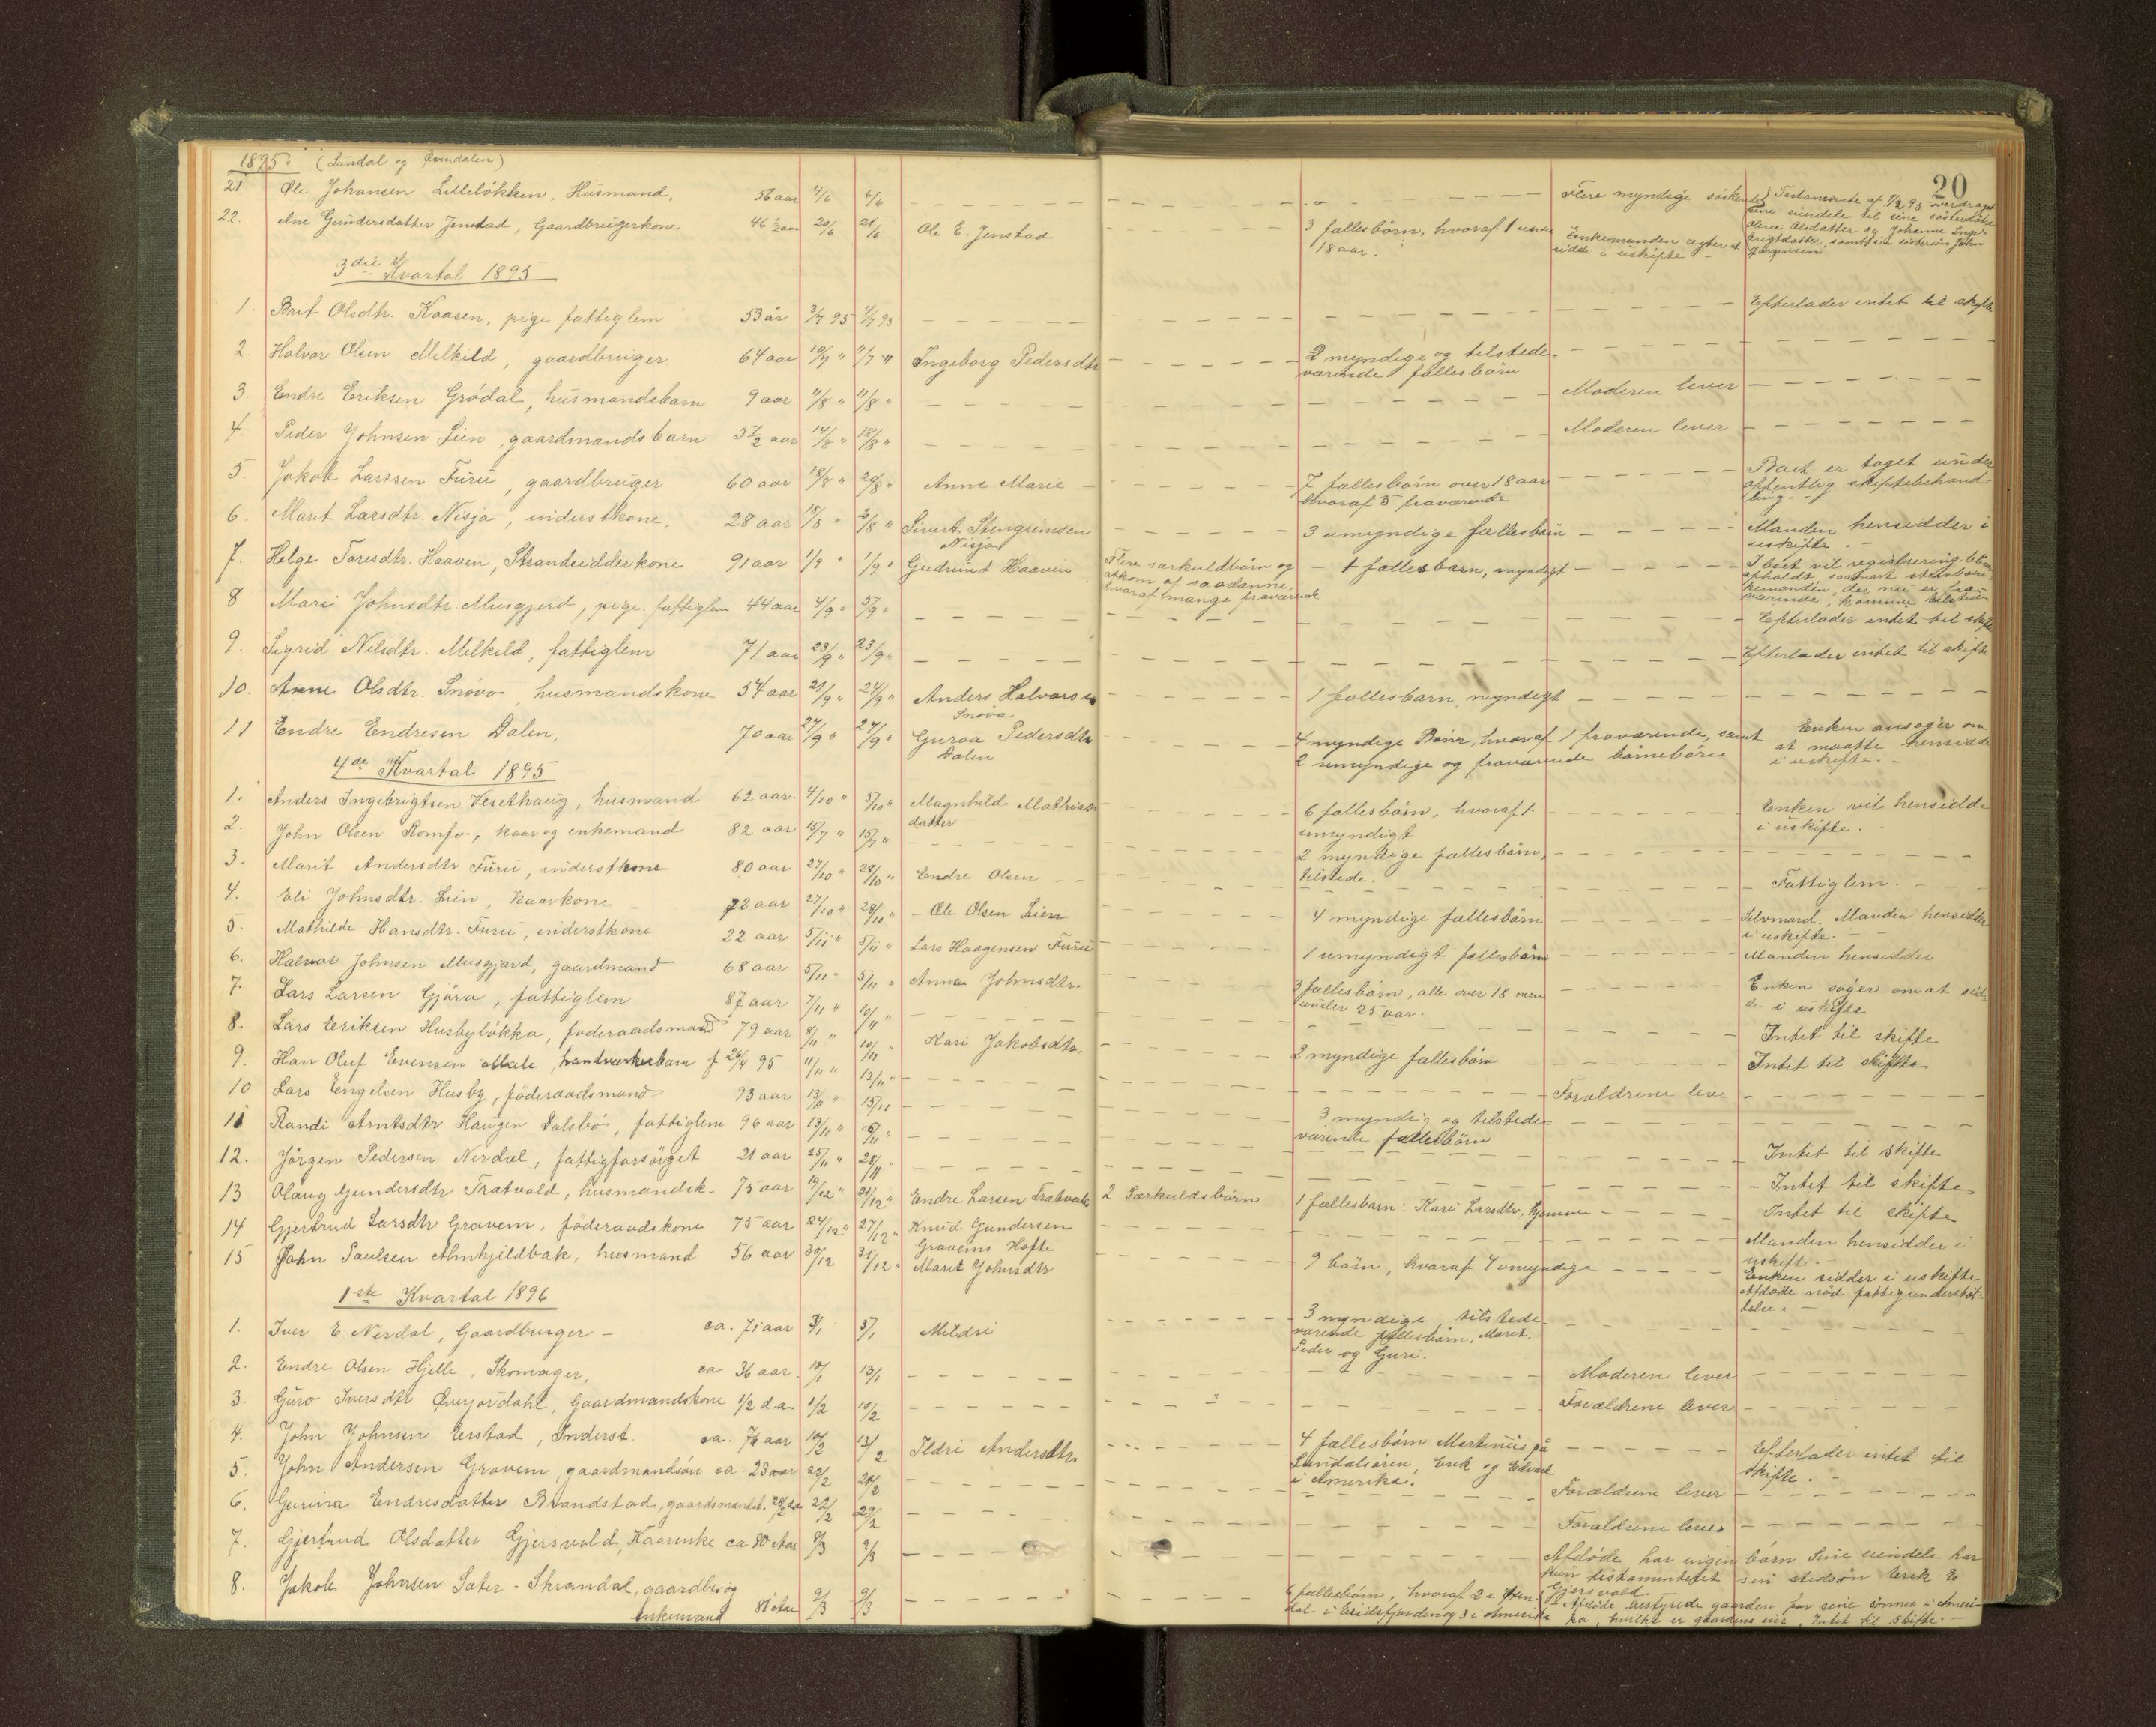 1895. (Sundal og Øxendalen)
20
21 Ole Johansen Lilleløkken, Husmand, 56 aar 4/6 6/6 Flere myndige søskende Testamente af 7/2 95 overdraget
sine eiendele til sine søsterdøtre
22. Ane Gundersdatter Jenstad, Gaardbrugerkone 46 1/2 aar 20/6 21/6 Ole E. Jenstad 3 fællesbørn, hvoraf 1 under Enkemanden agter at Olsdatter og Johanne Inge-
18 aar. sidde i uskifte - brigtdatter, samt sin søstersøn John
Jørgensen.
3die Kvartal 1895
1. Brit Olsdtr. Kaasen, pige fattiglem 53 år 3/7 95 4/7 95 Efterlader intet til skifte
2. Halvor Olsen Melkild, gaardbruger 64 aar 10/7 " 11/7 " Ingeborg Pedersdtr 2 myndige og tilstede-
værende fællesbørn
3. Endre Eriksen Grødal, husmandsbarn 9 aar 11/8 " 11/8 " Moderen lever
4. Peder Johnsen Lien, gaardmandsbarn 5 1/2 aar 14/8 " 18/8 " Moderen lever
5. Jakob Larssen Furu, gaardbruger 60 aar 18/8 " 20/8 " Anne Marie - 7 fællesbørn over 18 aar Boet er taget under
hvoraf 5 fraværende offentlig skiftebehand-
ling. -
6. Marit Larsdtr. Nisja, inderstkone. 28 aar 18/8 " /8 " Sivert Stengrimsen 3 umyndige fællesbørn Manden hensidder i
Nisja uskifte. -
7. Helge Toresdtr. Haaven, Strandsidderkone 91 aar 1/9 " 1/9 " Gudmund Haaven Flere særkuldbørn og - 1 fællesbarn, myndigt I boet vil registrering blive
afkom af saadanne, afholdt, saasnart
hvoraf mange fraværende kemanden, der nu er fra-
værende, kommer tilstede
8 Mari Johnsdtr Musgjerd, pige fattiglem 44 aar 4/9 " 5/9 " Efterlader intet til skifte
9. Sigrid Nilsdtr. Melkild, fattiglem 71 aar 23/9 " 23/9 " Efterlader intet til skifte
10. Anne Olsdtr. Snøvo husmandskone 54 aar 21/9 " 24/9 " Anders Halvorsen 1 fællesbarn myndigt
Snøva
11 Endre Endresen Dalen, 70 aar 27/9 " 27/9 " Guroa Pedersdtr 4 myndige Børn, hvoraf 1 fraværende, samt Enken ansøger om
Dalen 2 umyndige og fraværende børnebørn at maatte hensidde
i uskifte. -
4de Kvartal 1895
1. Anders Ingebrigtsen Vesethaug, husmand 62 aar. 4/10 " 5/10 " Magnhild Mathias- 6 fællesbørn, hvoraf 1. Enken vil hensidde
datter umyndigt i uskifte.
2. John Olsen Romfo, kaar og enkemand 82 aar 15/7 " 15/7 " 2 myndige fællesbørn,
tilstede.
3. Marit Andersdtr Furu, inderstkone 80 aar 27/10 " 28/10 " Endre Olsen Fattiglem. -
4. Eli Johnsdtr. Lien, kaarkone 72 aar 27/10 " 28/10 " - Ole Olsen Lien 4 myndige fællesbørn Selvmord. Manden hensidder
i uskifte. -
5. Mathilde Hansdtr. Furu, inderstkone 22 aar 5/11 " 5/11 " Lars Haagensen Furu 1 umyndigt fællesbørn Manden hensidder
6. Halvor Johnsen Musgjærd, gaardmand 68 aar 5/11 " 5/11 " Anne Johnsdtr. 3 fællesbørn, alle over 18 men Enken søger om at sid-
under 25 aar. de i uskifte
7. Lars Larsen Gjøra, fattiglem 87 aar 7/11 " 10/11 " Intet til skifte
8. Lars Eriksen Husbyløkka, føderaadsmand 79 aar 8/11 " 10/11 " Kari Jakobsdtr. 2 myndige fællesbørn Intet til skifte
9. Han Oluf Evensen , handværkerbarn f 26/4 95 11/11 " 12/11 " Forældrene leve
10 Lars Engelsen Husby, føderaadsmand 93 aar 13/11 " 15/11 3 myndig og tilstede-
værende fællesbørn
11 Randi Arntsdtr Haugen Dalsbø, fattiglem 96 aar 13/11 " /11 " Intet til skifte
12. Jørgen Pedersen Nerdal, fattigforsørget 21 aar 25/11 " 28/11 " - Intet til skifte
13 Olaug Gundersdtr Trætvold, husmandsk. 75 aar 19/12 " 21/12 " Endre Larsen Trætvold 2 Særkuldsbørn 1 fællesbarn: Kari Larsdtr, hjemme Intet til skifte
14 Gjertrud Larsdtr Gravem, føderaadskone 75 aar 24/12 " 27/12 " Knud Gundersen Manden hensidder i
Gravems Hofte uskifte. -
15 John Paulsen Almhjeldbak, husmand 56 aar 30/12 31/12 " Marit Johnsdtr 9 børn, hvoraf 4 umyndige Enken sidder i uskifte
Afdøde nød fattigunderstøt-
telse. -
1ste Kvartal 1896
1. Iver E Nerdal, Gaardbruger - ca. 71 aar 3/1 5/1 Mildri 3 myndige, tilstede-
værende fællesbørn. Marit,
Peder og Guri.
2. Endre Olsen Hjelle, Skomager, ca 36 aar 10/1 13/1 Moderen lever
3. Guro Iversdtr Øverjordahl, Gaardmandskone 1/2 d a. 1/2 10/2 Forældrene lever
4. John Johnsen Erstad, Inderst ca. 76 aar 10/2 13/2 Ildri Andersdtr. 4 fællesbørn Martinus på Efterlader intet til
Sundalsøren, Erik og Edvard skifte. -
i Amerika.
5. John Andersen Gravem, gaardmandsøn ca 23 aar 22/2 /2 Forældrene lever
6. Gurina Endresdatter Brandstad, gaardsmandsd. 22/2 29/2 Forældrene lever
7. Gjertrud Olsdatter Gjersvold, Kaarenke ca 80 Aar 8/3 9/3 Afdøde har ingen børn Sine eiendele har
hun testamentert sin stedsøn Erik E
Gjersvold.
8. Jakob Johnsen Sæter - Skrondal, gaardbr. og 6 fællesbørn, hvoraf 2 i Øxen- Afdøde bestyrede gaarden for sine sønner i Ameri-
Enkemand 81 Aar 9/3 9/3 dal i Eridsfjorden og 3 i Amerika ka, hvilke er gaardens eier, Intet til Skifte. -